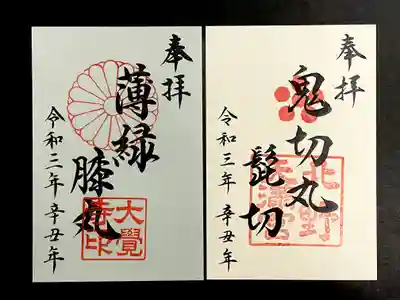 奉拝
薄緑
膝丸
令和三年 辛丑年
大覺
寺印
奉拝
鬼切丸
髭切
令和三年 辛丑年
北野
天満宮